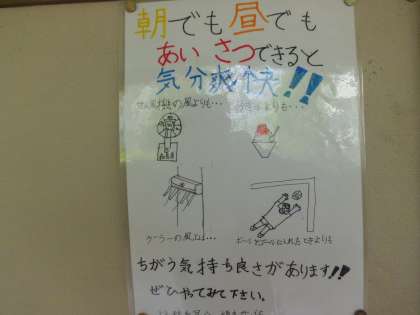 朝でも昼でも
あいさつできると
気分爽快!!
せん風きの風よりも…
かき氷よりも…
クーラーの風より…
ボールをゴールに入れたときよりも
ちがう気持ち良さがあります!!
ぜひやってみて下さい。